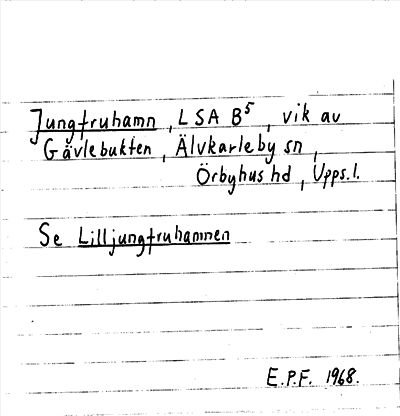 Jungfruhamn, LSA B⁵, vik av
Gävlebukten, Älvkarleby sn,
Örbyhus hd, Upps.l.
Se Lilljungfruhamnen
E.P.F. 1968.